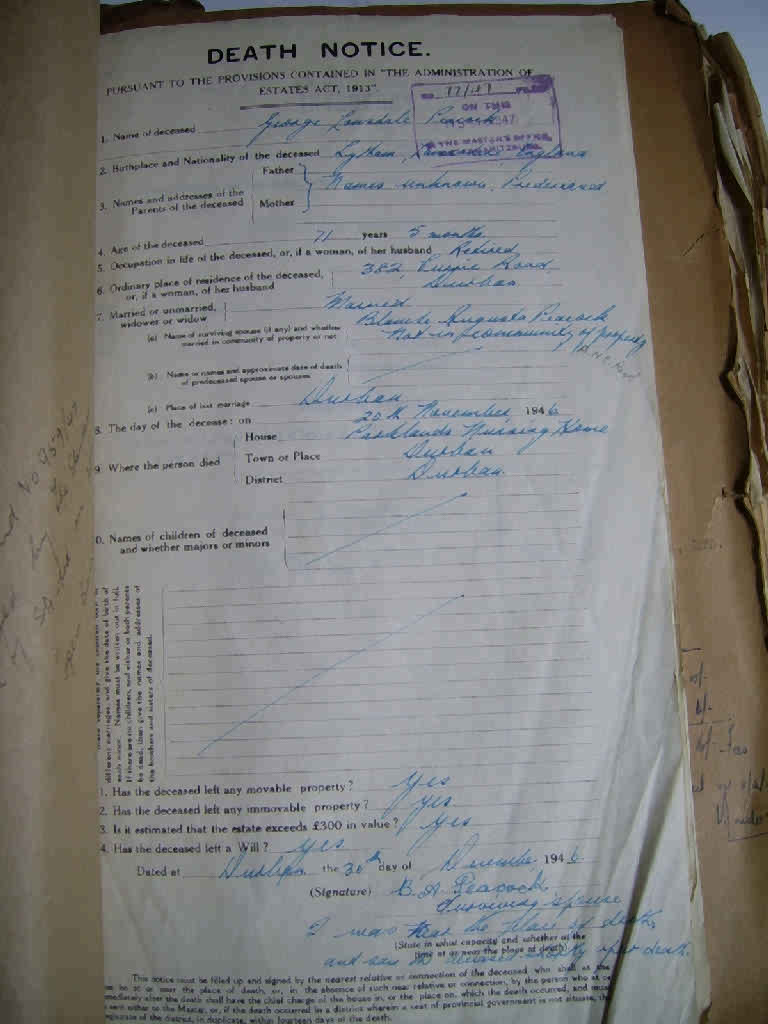 DEATH NOTICE.
PURSUANT TO THE PROVISIONS CONTAINED IN "THE ADMINISTRATION OF
ESTATES ACT, 1913".
ON THIS
THE MASTER'S OFFICE
1. Name of deceased George Lonsdale Peacock
2. Birthplace and Nationality of the deceased Lytham, Lancashire England
3. Names and addresses of the Parents of the deceased
Father
Mother
Names unknown, Predeceased
4. Age of the deceased 71 years 5 months
5. Occupation in life of the deceased, or, if a woman, of her husband Retired
6. Ordinary place of residence of the deceased, 382, Currie Road,
or, if a woman, of her husband Durban
7. Married or unmarried, Married
widower or widow
(a) Name of surviving spouse (if any) and whether Blanche Augusta Peacock
married in community of property or not Not in community of property
(b) Name or names and approximate date of death
of predeceased spouse or spouses
(c) Place of last marriage Durban
8. The day of the decease: on 20th November 1946
9. Where the person died
House Parklands Nursing Home
Town or Place Durban
District Durban
0. Names of children of deceased
and whether majors or minors
different marriages, and give the date of birth of
each minor. Names must be written out in full.
If there are no children, and either or both parents
be dead, then give the names and addresses of
the brothers and sisters of deceased.
1. Has the deceased left any movable property? yes
2. Has the deceased left any immovable property? yes
3. Is it estimated that the estate exceeds £300 in value? yes
4. Has the deceased left a Will? yes
Dated at Durban the 30th day of December 1946
(Signature) B. A. Peacock
Surviving spouse
I was near the place of death,
(State in what capacity and whether at the
time at or near the place of death)
and saw the deceased shortly after death.
This notice must be filled up and signed by the nearest relative or connection of the deceased who shall at the
be at or near the place of death, or, in the absence of such near relative or connection, by the person who at or
immediately after the death shall have the chief charge of the house in, or the place on, which the death occurred, and must
sent either to the Master, or, if the death occurred in a district wherein a seat of provincial government is not situate, the
magistrate of the district, in duplicate, within fourteen days of the death.